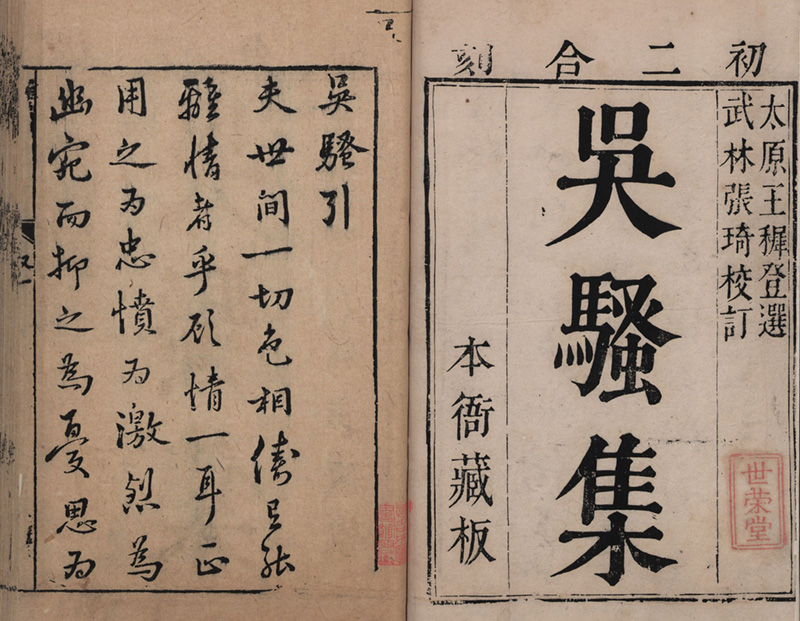 初二合刻
太原王穉登選
武林張琦校訂
吳騷集
本衙藏板
世荣堂
吳騷引
夫世間一切色相儔有能
離情者乎顧情一耳正
用之为忠憤为激烈為
幽宛而抑之為憂思为